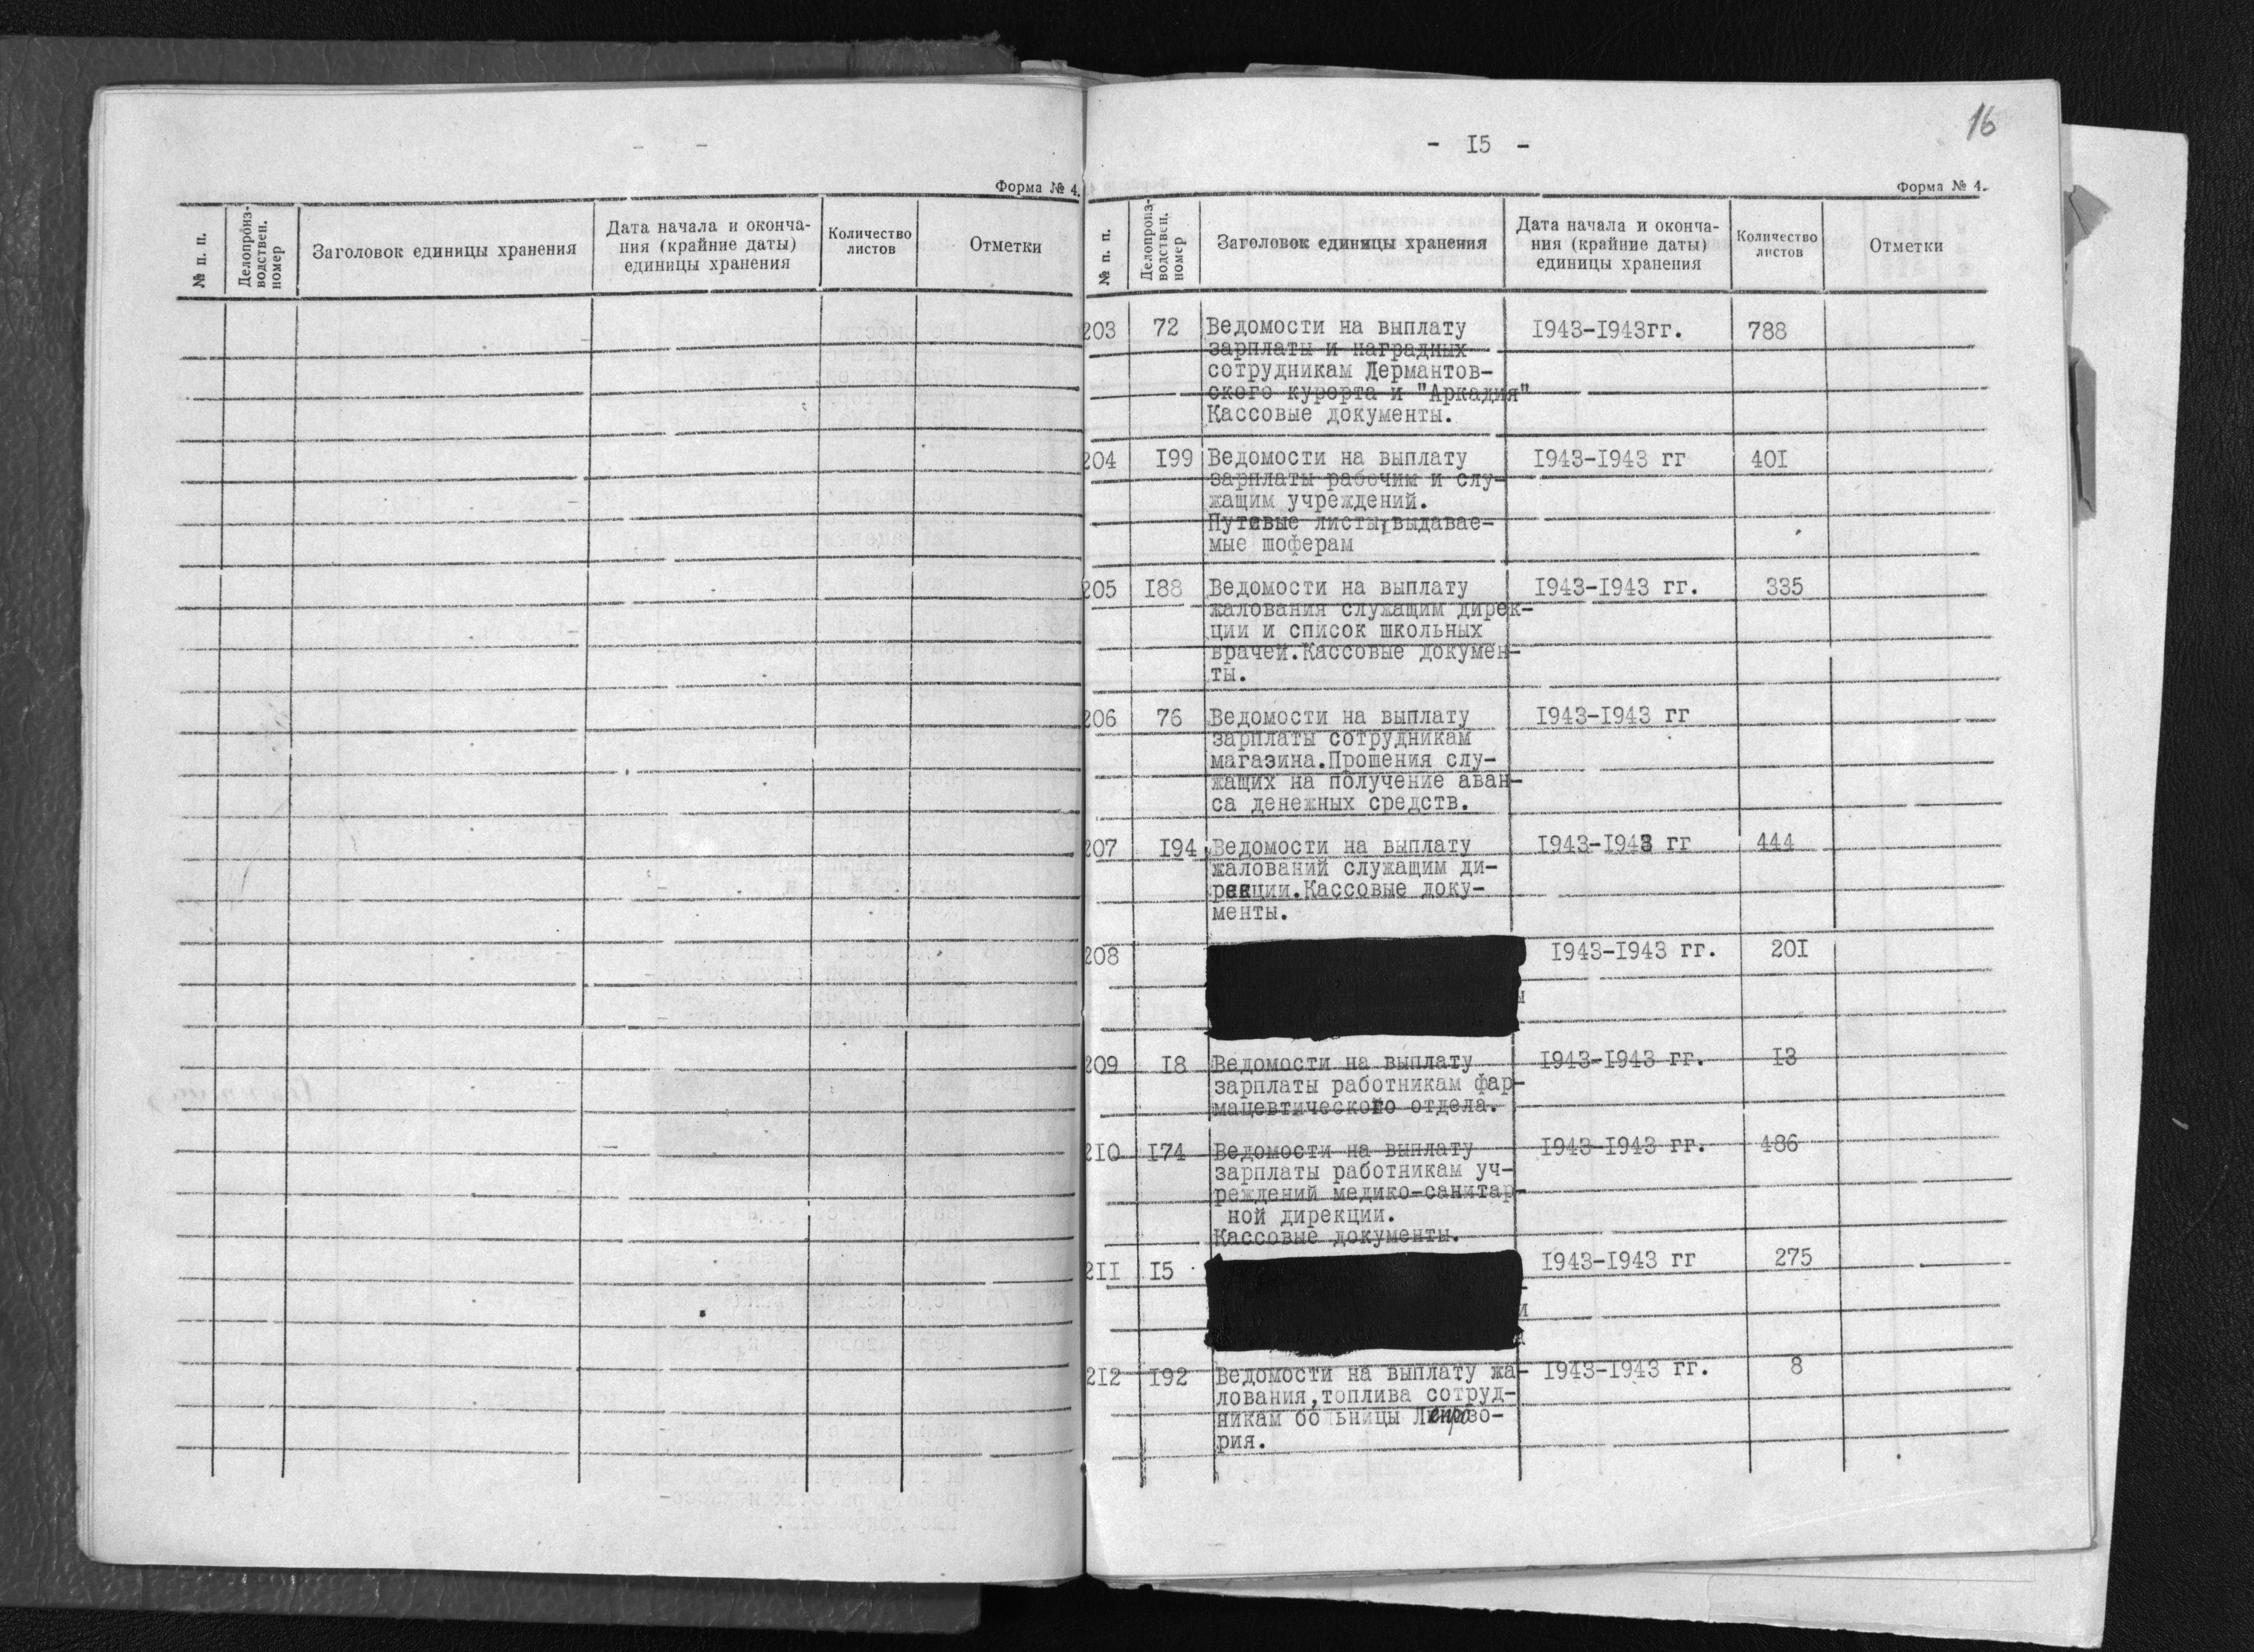 Форма № 4.
№ п. п.
Делопроиз-
водствен.
номер
Заголовок единицы хранения
Дата начала и оконча-
ния (крайние даты)
единицы хранения
Количество
листов
Отметки
16
- I5 -
Форма № 4.
№ п. п.
Делопроиз-
водствен.
номер
Заголовок единицы хранения
Дата начала и оконча-
ния (крайние даты)
единицы хранения
Количество
листов
Отметки
203 72 Ведомости на выплату I943-I943гг. 788
зарплаты и наградных
сотрудникам Дермантов-
ского курорта и "Аркадия"
Кассовые документы.
204 I99 Ведомости на выплату I943-I943 гг 40I
зарплаты рабочим и слу-
жащим учреждений.
Путевые листы, выдавае-
мые шоферам
205 I88 Ведомости на выплату I943-I943 гг. 335
жалования служащим дирек-
ции и список школьных
врачей.Кассовые докумен-
ты.
206 76 Ведомости на выплату I943-I943 гг
зарплаты сотрудникам
магазина.Прошения слу-
жащих на получение аван-
са денежных средств.
207 I94 Ведомости на выплату I943-I943 гг 444
жалований служащим ди-
рекции.Кассовые доку-
менты.
208 I943-I943 гг. 20I
209 I8 Ведомости на выплату I943-I943 гг. I3
зарплаты работникам фар-
мацевтического отдела.
2I0 I74 Ведомости на выплату I943-I943 гг. 486
зарплаты работникам уч-
реждений медико-санитар-
ной дирекции.
Кассовые документы.
2II I5 I943-I943 гг 275
2I2 I92 Ведомости на выплату жа- I943-I943 гг. 8
лования,топлива сотруд-
никам больницы Лепрозо-
рия.